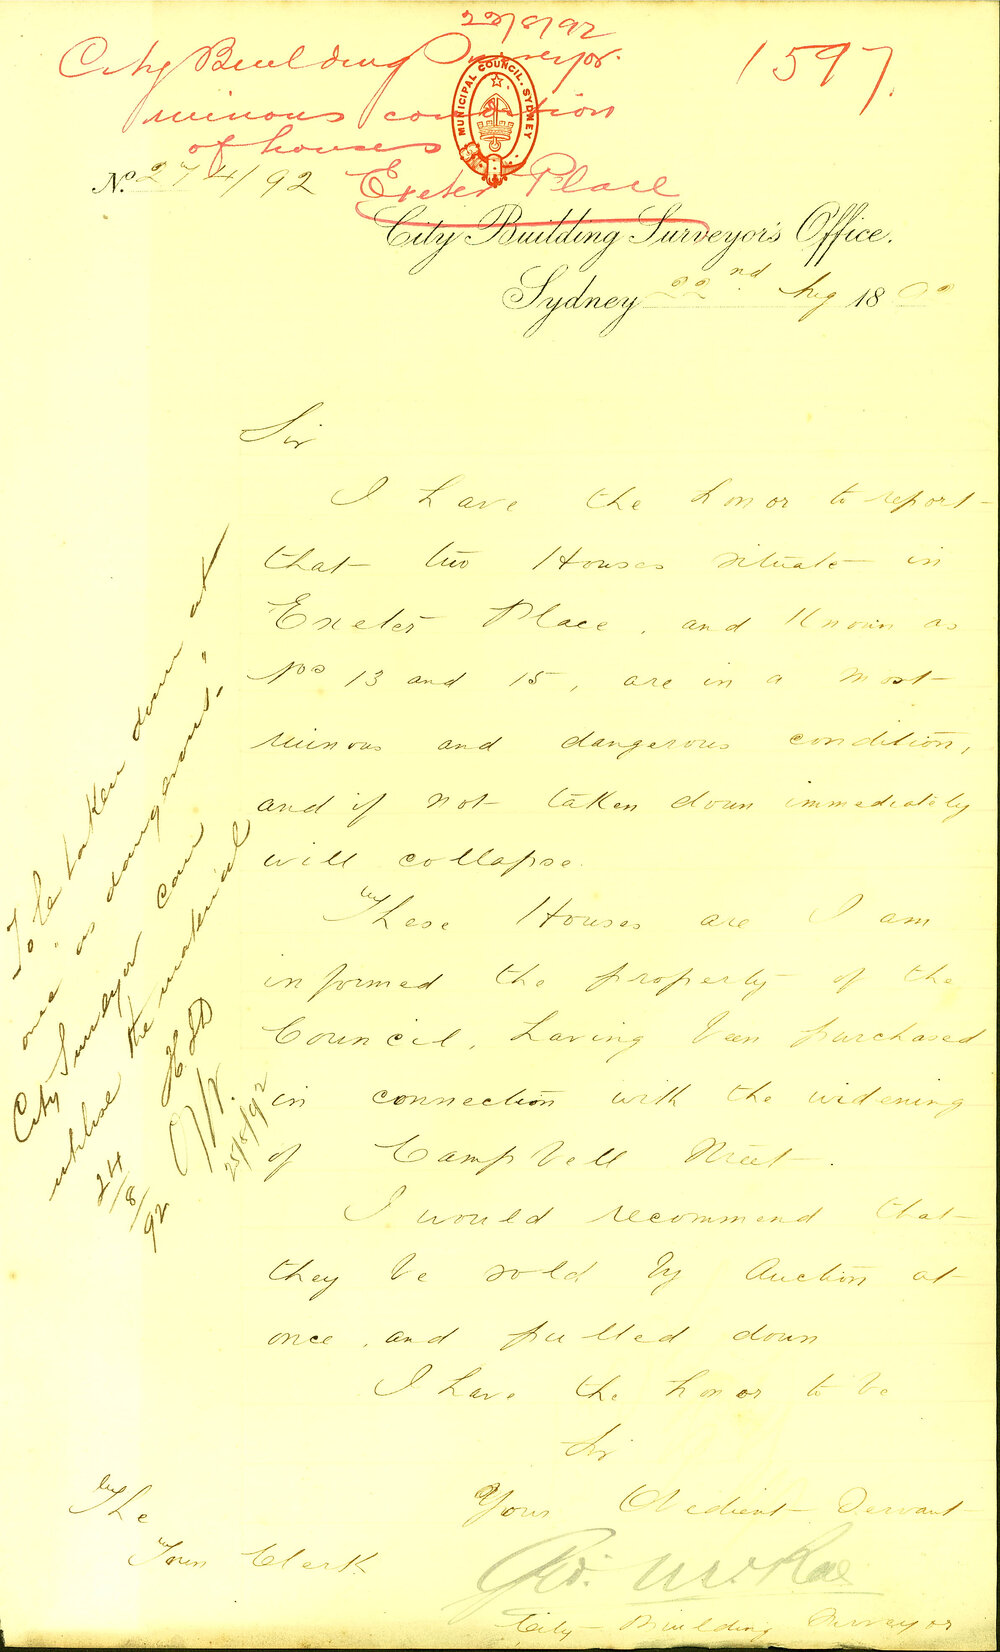 22/8/92
City Building Surveyor
1597.
ruinous condition
of houses
Exeter Place
MUNICIPAL COUNCIL. SYDNEY
No. 274/92
City Building Surveyor's Office.
Sydney 22nd Aug 1892
Sir
I have the honor to report
that two Houses situate in
Exeter Place, and Known as
Nos 13 and 15, are in a most
ruinous and dangerous condition,
and if not taken down immediately
will collapse.
These Houses are I am
informed the property of the
Council, having been purchased
in connection with the widening
of Campbell Street.
I would recommend that
they be sold by Auction at
once, and pulled down
I have the honor to be
Sir
Your Obedient Servant
Geo. McRae
City Building Surveyor
The
Town Clerk
To be taken down at
once "as dangerous."
City Surveyor can
utilise the material
24/8/92
25/8/92